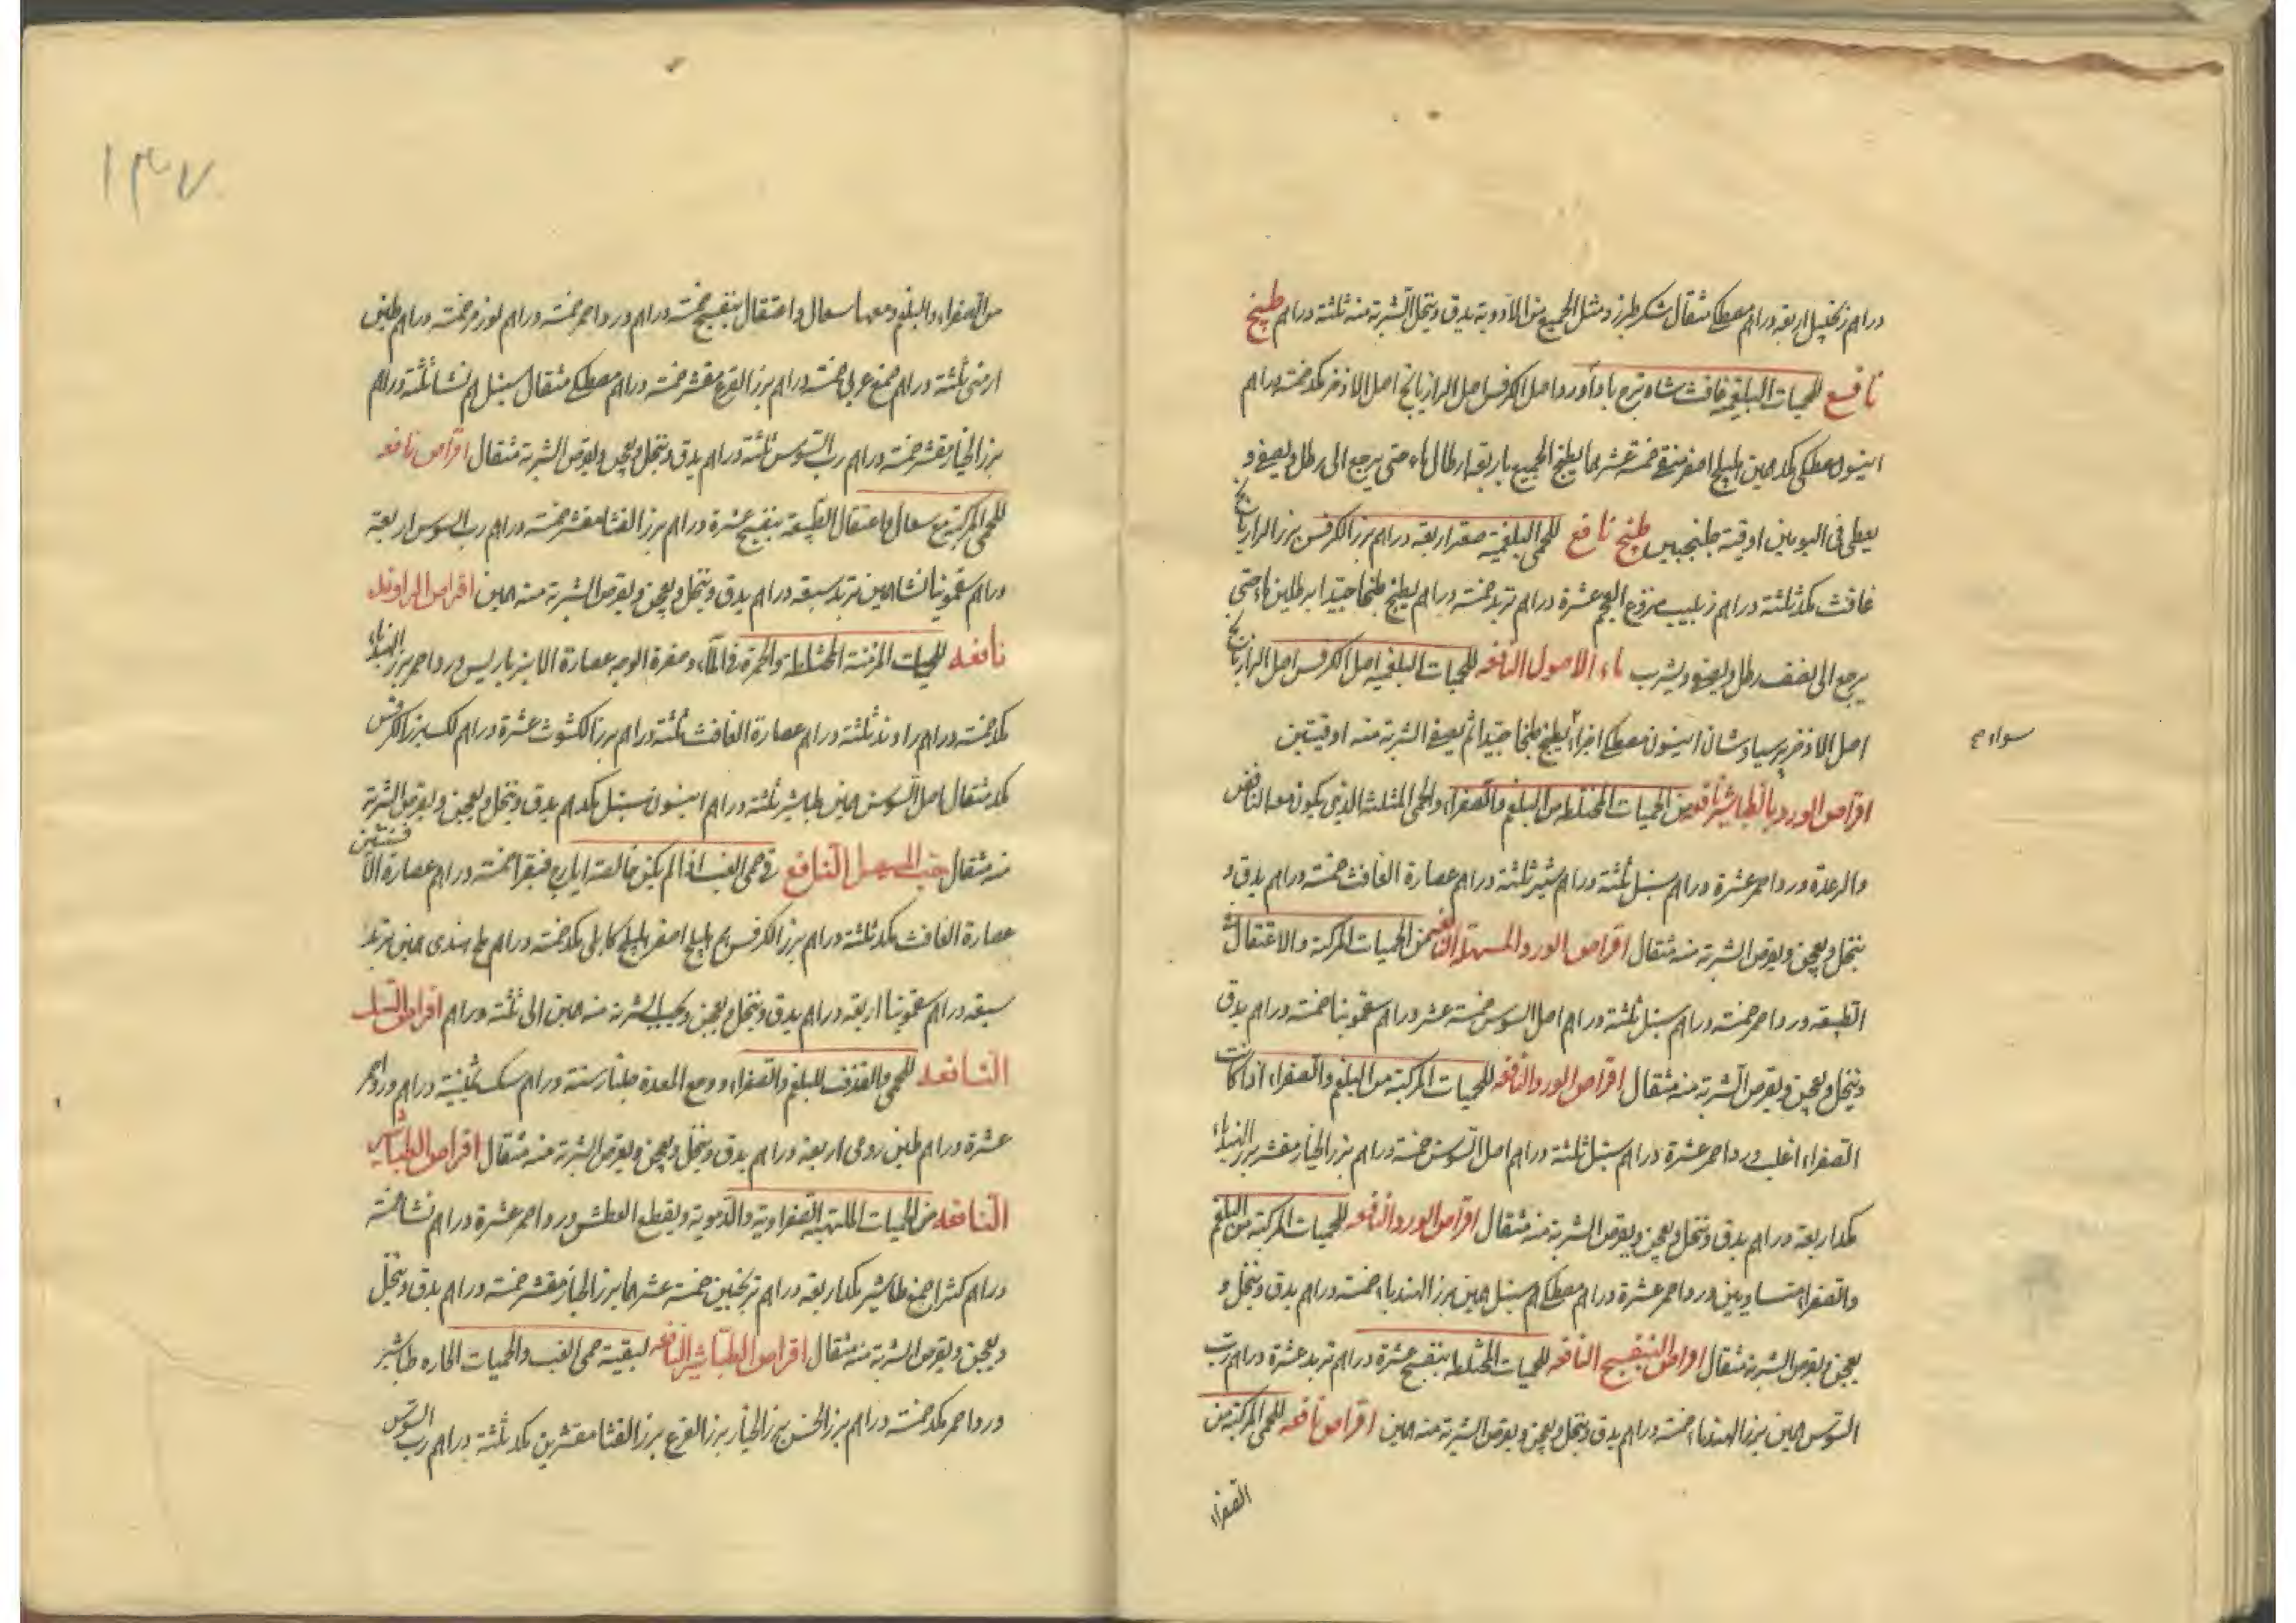 دراهم زنجبيل اربعة دراهم مصطكي مثقال سكر طبرزد مثل الجميع من الادوية يدق وينخل الشربة منه ثلثة دراهم طبيخ
نافع للحميات البلغمية غافث شاهترج باداورد اصل الكرفس اصل الرازيانج اصل الاذخر مكد خمسة دراهم
انيسون مصطكي مكد همين هليلج اصفر منقى خمسة عشر هما يطبخ الجميع باربعة ارطال ماء حتى يرجع الى رطل ويصفى و
يعطى في اليومين اوقية طلنجبين طبيخ نافع للحمى البلغمية صعتر اربعة دراهم بزر الكرفس بزر الرازيانج
غافث مكد ثلثة دراهم زبيب منزوع العجم عشرة دراهم تربد خمسة دراهم يطبخ طبخا جيدا برطلين ماء حتى
يرجع الى نصف رطل ويصفى ويشرب ماء الاصول النافعة للحميات البلغمية اصل الكرفس اصل الرازيانج
اصل الاذخر برسياوشان انيسون مصطكي اجزاء يطبخ طبخا جيدا ثم يصفى الشربة منه اوقيتين
سواء صح
اقراص الورد بالطباشير نافعة من الحميات المختلطة من البلغم والصفراء والحمى المثلثة الذي يكون معه النافض
والرعدة ورد احمر عشرة دراهم سنبل ثلثة دراهم شير ثلثة دراهم عصارة الغافث خمسة دراهم يدق و
ينخل ويعجن ويقرص الشربة منه مثقال اقراص الورد المسهلة النافعة من الحميات المركبة والاعتقال
الطبيعة ورد احمر خمسة دراهم سنبل ثلثة دراهم اصل السوس خمسة عشر دراهم سقمونيا خمسة دراهم يدق
وينخل ويعجن ويقرص الشربة منه مثقال اقراص الورد النافعة للحميات المركبة من البلغم والصفراء اذا كانت
الصفراء اغلب ورد احمر عشرة دراهم سنبل ثلثة دراهم اصل السوس خمسة دراهم بزر الخيار مقشر بزر الهندباء
مكد اربعة دراهم يدق وينخل ويعجن ويقرص الشربة منه مثقال اقراص الورد النافعة للحميات المركبة من البلغم
والصفراء متساويين ورد احمر عشرة دراهم مصطكي هم سنبل همين بزر الهندباء خمسة دراهم يدق وينخل و
يعجن ويقرص الشربة مثقال اقراص البنفسج النافعة للحميات المختلطة بنفسج عشرة دراهم تربد عشرة دراهم رب
السوس همين بزر الهندباء خمسة دراهم يدق وينخل ويعجن ويقرص الشربة منه همين اقراص نافعة للحمى المركبة من
الصفراء
١٣٧
من الصفراء والبلغم ومعها سعال واعتقال بنفسج خمسة دراهم ورد احمر خمسة دراهم لوز مر خمسة دراهم طين
ارمنى ثلثة دراهم صمغ عربى خمسة دراهم بزر القرع مقشر خمسة دراهم مصطكي مثقال سنبل هم نشا ثلثة دراهم
بزر الخيار مقشر خمسة دراهم رب السوس ثلثة دراهم يدق وينخل ويعجن ويقرص الشربة مثقال اقراص نافعة
للحمى المركبة مع سعال واعتقال الطبيعة بنفسج عشرة دراهم بزر القثا مقشر خمسة دراهم رب السوس اربعة
دراهم سقمونيا نشا همين تربد سبعة دراهم يدق وينخل ويعجن ويقرص الشربة منه همين اقراص الراوند
نافعة للحميات المزمنة المختلطة والحمرة في الماء وصفرة الوجه عصارة الانبرباريس ورد احمر بزر الهندباء
مكد خمسة دراهم راوند ثلثة دراهم عصارة الغافث ثلثة دراهم بزر الكشوث عشرة دراهم لك بزر الكرفس
مكد مثقال اصل السوس همين طباشير ثلثة دراهم انيسون سنبل مكد هم يدق وينخل ويعجن ويقرص الشربة
منه مثقال حب المسهل النافع في حمى الغب اذا لم يكن خالصة ايارج فيقرا خمسة دراهم عصارة الافسنتين
عصارة الغافث مكد ثلثة دراهم بزر الكرفس هم هليلج اصفر هليلج كابلى مكد خمسة دراهم ملح هندى همين تربد
سبعة دراهم سقمونيا اربعة دراهم يدق وينخل ويعجن ويحبب الشربة منه همين الى ثلثة دراهم اقراص السك
النافعة للحمى والقذف للبلغم والصفراء ووجع المعدة جلنار ستة دراهم سك ثمنية دراهم ورد احمر
عشرة دراهم طين رومى اربعة دراهم يدق وينخل ويعجن ويقرص الشربة منه مثقال اقراص الطباشير
النافعة من الحميات الملتهبة الصفراوية والدموية ويقطع العطش ورد احمر عشرة دراهم نشا خمسة
دراهم كثيرا صمغ طباشير مكد اربعة دراهم ترنجبين خمسة عشر هما بزر الخيار مقشر خمسة دراهم يدق وينخل
ويعجن ويقرص الشربة منه مثقال اقراص الطباشير النافعة لبقية حمى الغب والحميات الحارة طباشير
ورد احمر مكد خمسة دراهم بزر الخس بزر الخيار بزر القرع بزر القثا مقشرين مكد ثلثة دراهم رب السوس